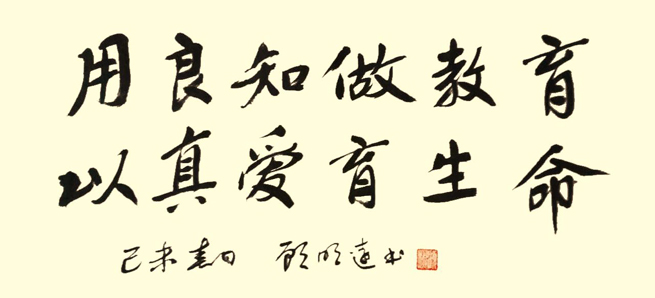 用良知做教育
以真爱育生命
己未春日 顾明远书